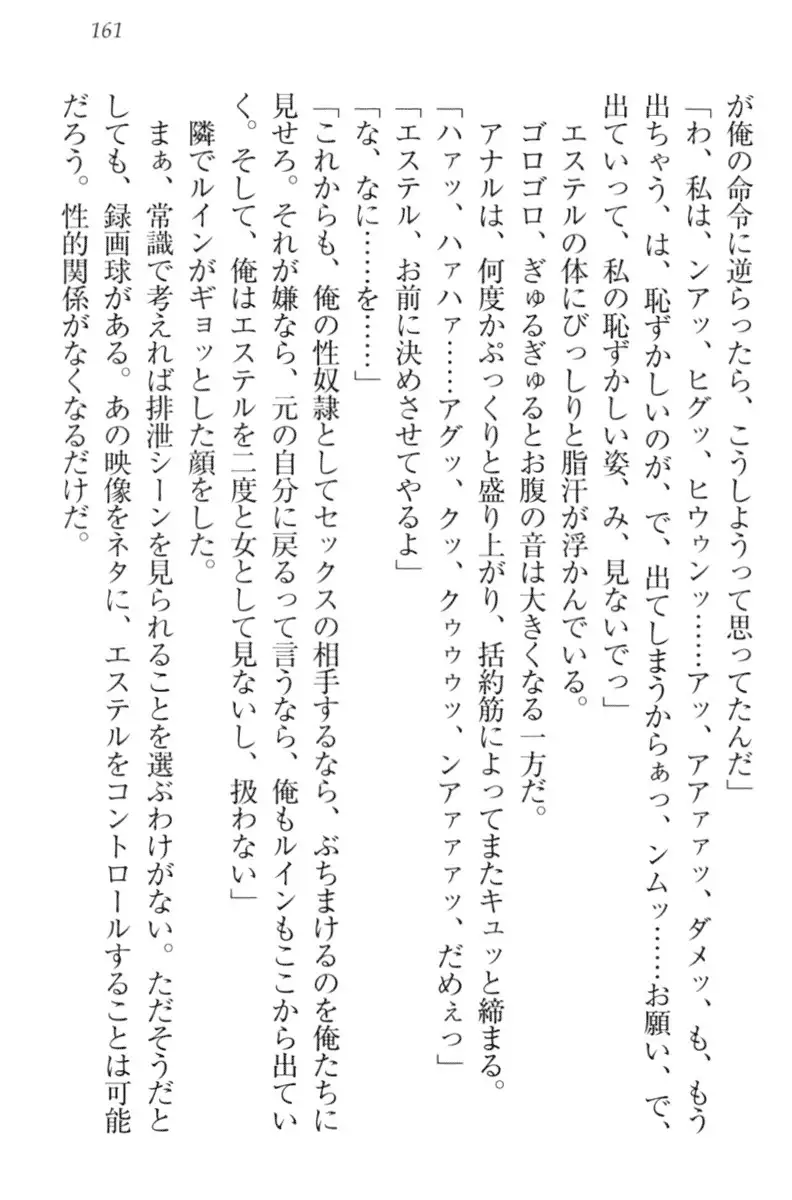 161
が俺の命令に逆らったら、こうしようって思ってたんだ」
「わ、私は、ンアッ、ヒグッ、ヒウゥンッ……アッ、アアァァッ、ダメッ、も、もう
出ちゃう、は、恥ずかしいのが、で、出てしまうからぁっ、ンムッ……お願い、で、
出ていって、私の恥ずかしい姿、み、見ないでっ」
エステルの体にびっしりと脂汗が浮かんでいる。
ゴロゴロ、ぎゅるぎゅるとお腹の音は大きくなる一方だ。
アナルは、何度かぷっくりと盛り上がり、括約筋によってまたキュッと締まる。
「ハァッ、ハァハァ……アグッ、クッ、クゥゥゥッ、ンアァァァッ、だめぇっ」
「エステル、お前に決めさせてやるよ」
「な、なに……を……」
「これからも、俺の性奴隷としてセックスの相手するなら、ぶちまけるのを俺たちに
見せろ。それが嫌なら、元の自分に戻るって言うなら、俺もルインもここから出てい
く。そして、俺はエステルを二度と女として見ないし、扱わない」
隣でルインがギョッとした顔をした。
まぁ、常識で考えれば排泄シーンを見られることを選ぶわけがない。ただそうだと
しても、録画球がある。あの映像をネタに、エステルをコントロールすることは可能
だろう。性的関係がなくなるだけだ。